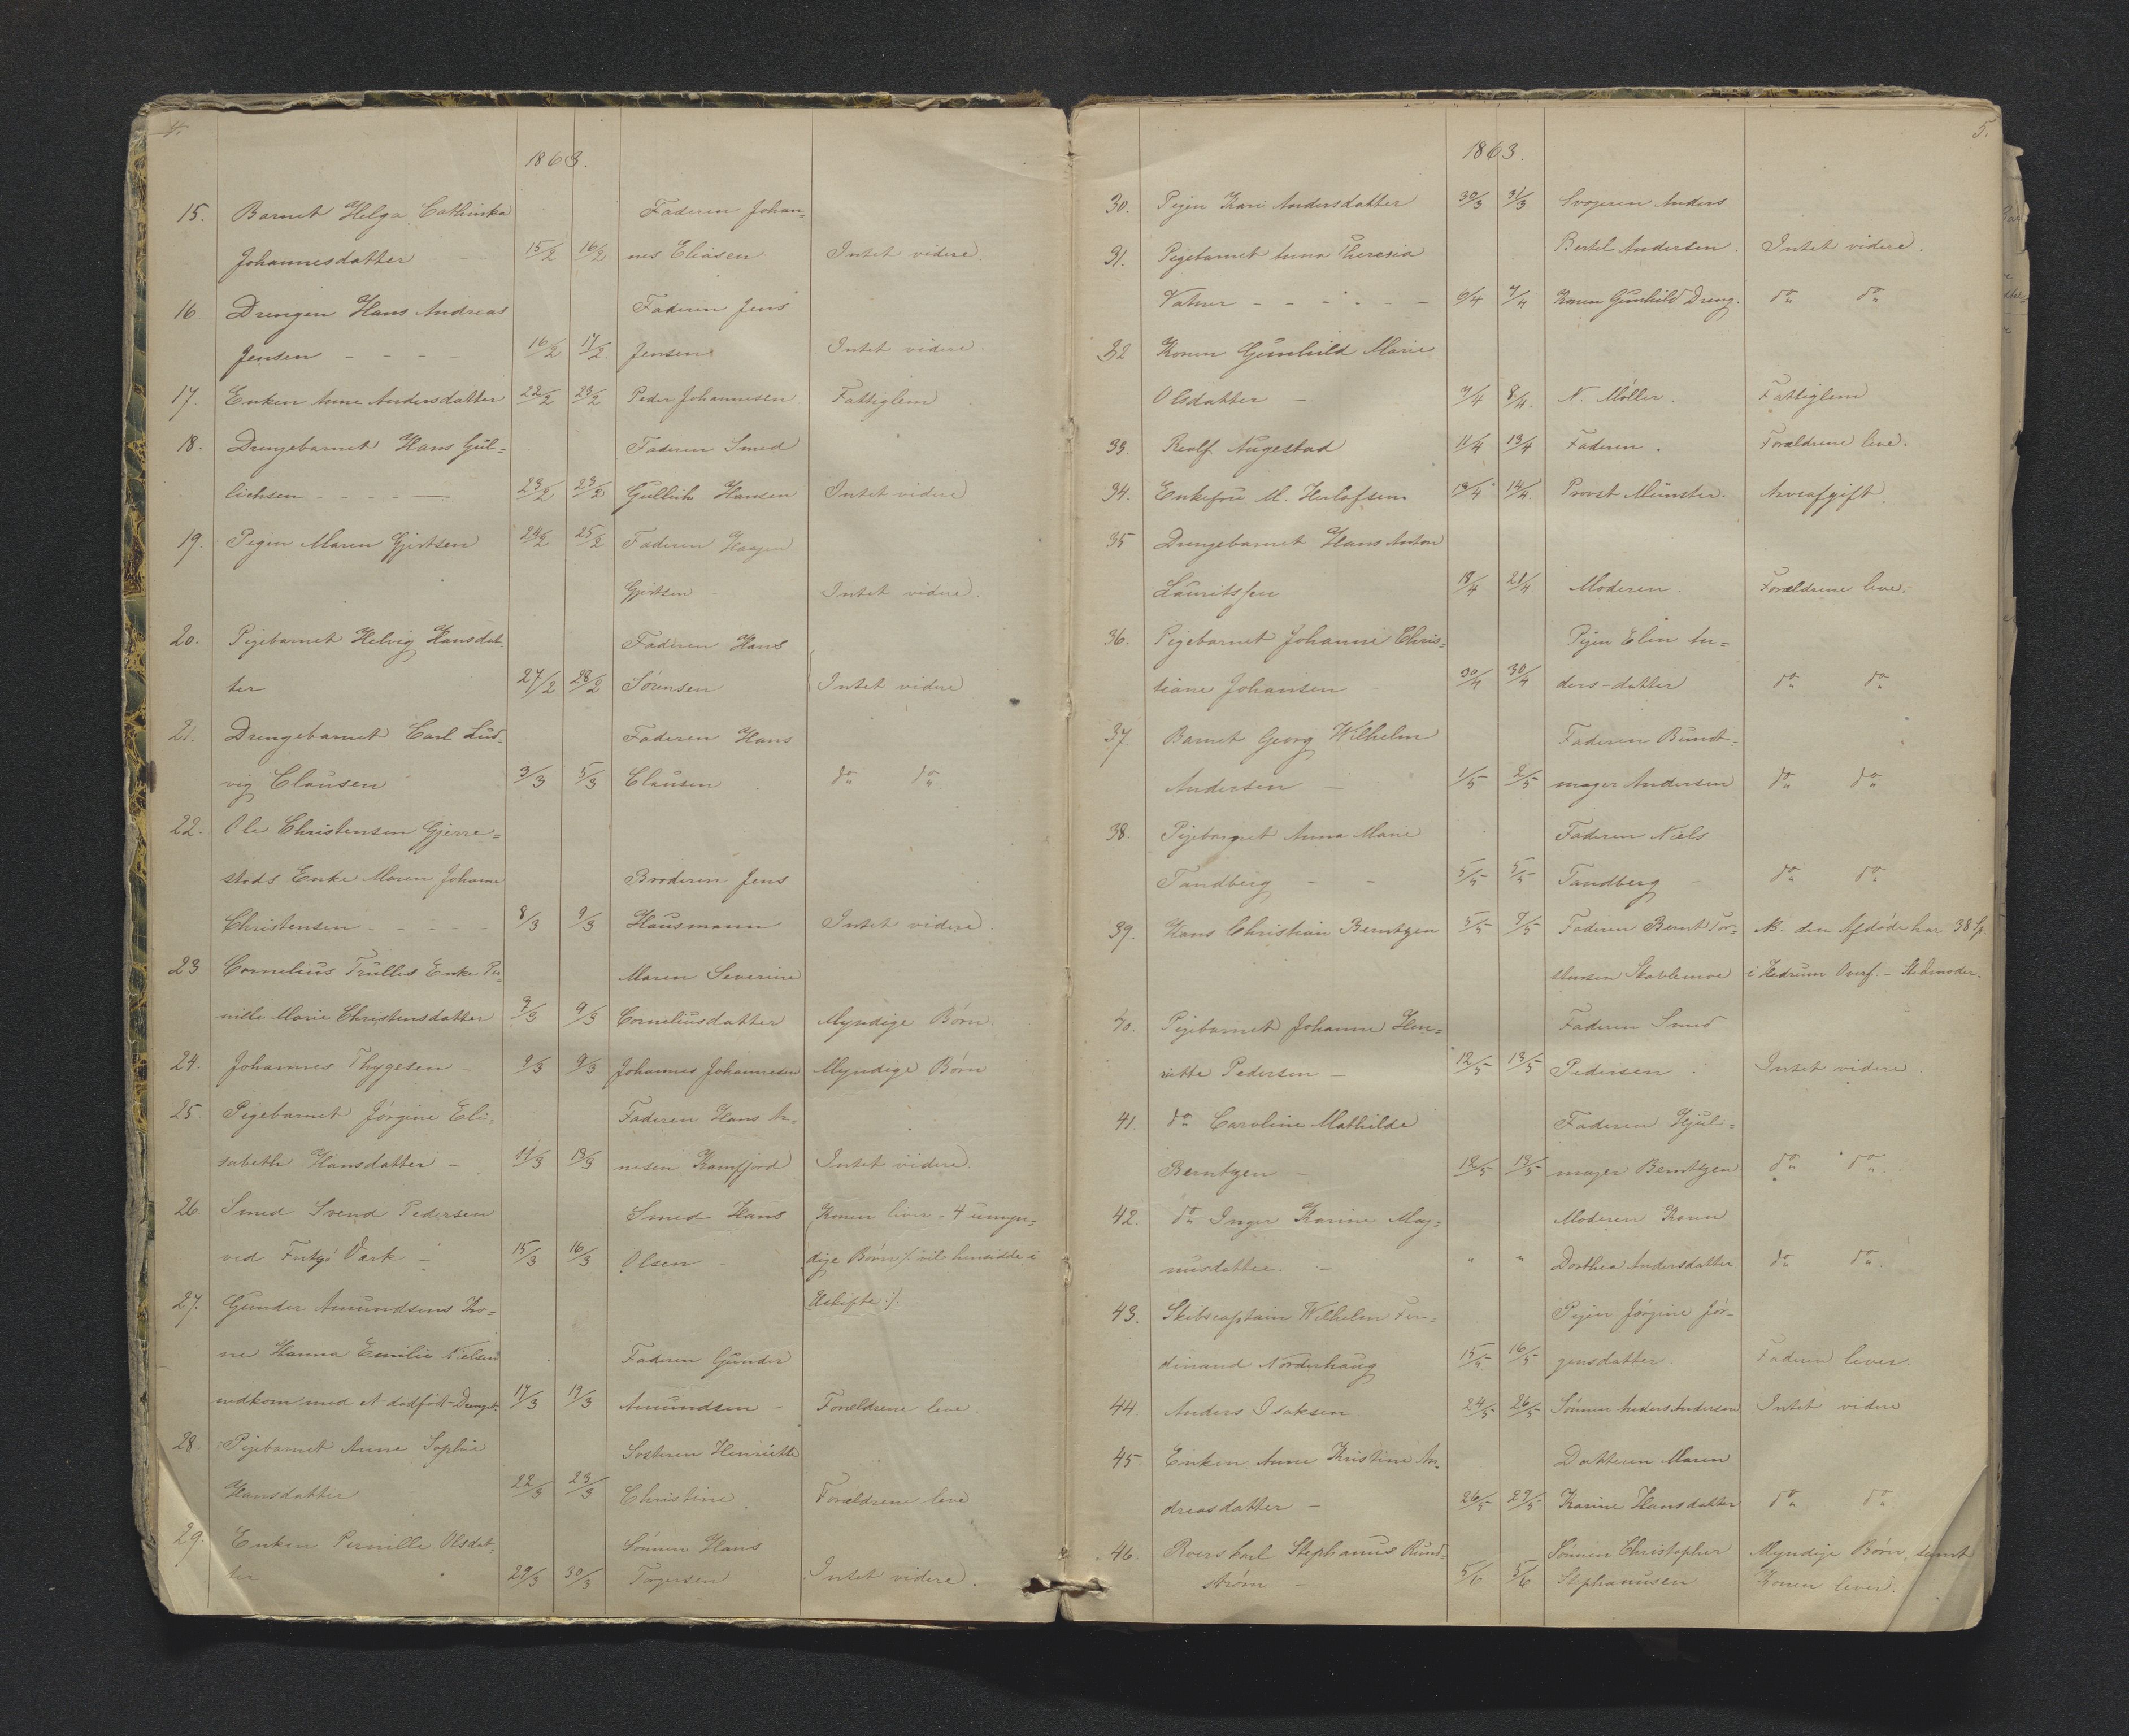 4.
1863.
15. Barnet Helga Cathinka Faderen Johan-
Johannesdatter 15/2 16/2 nes Eliasen Intet videre
16 Drengen Hans Andreas Faderen Jens
Jensen - - - - 16/2 17/2 Jensen Intet videre.
17. Enken Anne Andersdatter 22/2 23/2 Peder Johannesen Fattiglem
18. Drengebarnet Hans Gul=
lichsen - - - - 23/2 23/2 Gullich Hansen Intet videre
Faderen Smed
19. Pigen Maren Gjertsen 24/2 25/2 Faderen Haagen
Gjertsen Intet videre
20. Pigebarnet Helvig Hansdat- Faderen Hans
ter 27/2 28/2 Sörensen Intet videre
21. Drengebarnet Carl Lud- Faderen Hans
vig Clausen 3/3 5/3 Clausen do do
22. Ole Christensen Gjerre=
stads Enke Maren Johanne Broderen Jens
Christensen - - - - 8/3 9/3 Hausmann Intet videre.
23 Cornelius Trulles Enke Per- Maren Severine
nille Marie Christensdatter 9/3 Corneliusdatter Myndige Börn.
24. Johannes Thygesen - 9/3 9/3 Johannes Johannesen Myndige Börn
25. Pigebarnet Jörgine Eli- Faderen Hans
sabeth Hansdatter - 11/3 13/3 Intet videre.
26. Smed Svend Pedersen Smed Hans Konen lever - 4 umyn=
ved Fritzö Værk - 15/3 16/3 Olsen - dige Börn /: vil hensidde i
Uskifte :/.
27. Gunder Amundsens Ko=
ne Hanna Emilie Nielsen Faderen Gunder
nedkom med et dödfödt Drengeb. 17/3 19/3 Amundsen - Forældrene leve.
28. Pigebarnet Anne Sophie Sösteren Henriette
Hansdatter 22/3 23/3 Christine Forældrene leve
29. Enken Pernille Olsdat- Sönnen Hans
ter 29/3 30/3 Torgersen Intet videre.
5.
1863.
30. Pigen Kari Andersdatter 30/3 31/3 Svogeren Anders
Bertel Andersen. Intet videre.
31. Pigebarnet Anna Theresia
Vatner - - - - - - 6/4 7/4 Konen Gunhild Dreng. do do
32 Konen Gunhild Marie
Olsdatter - 7/4 8/4. N. Möller. Fattiglem
33. Realf Augestad 11/4 13/4 Faderen. Forældrene leve.
34. Enkefru M. Herlofsen 13/4 14/4. Provst Münster. Arveafgift.
35 Drengebarnet Hans Anton
Lauritssen 18/4 21/4. Moderen. Forældrene leve.
36. Pigebarnet Johanne Chris- Pigen Elen An=
tiane Johansen 30/4 30/4 ders-datter do do
37. Barnet Georg Wilhelm Faderen Bundt-
Andersen - 1/5 2/5 mager Andersen do do
38. Pigebarnet Anna Marie Faderen Niels
Tandberg - - 5/5 5/5 Tandberg do do
39. Hans Christian Berntzen 5/5 7/5 Faderen Bernt Tor- NB. den Afdöde har 38 Sp.
stensen i Hedrum Overf. - Stedmoder.
40. Pigebarnet Johanne Hen= Faderen Smed
riette Pedersen - 12/5 13/5 Pedersen. Intet videre.
41. do Caroline Mathilde Faderen Hjul-
Berntzen - 12/5 13/5 mager Berntzen do do
42. do Inger Karine Mag- Moderen Karen
nusdatter. - " " Dorthea Andersdatter do do.
43. Skibscaptain Wilhelm Fer- Pigen Jörgine Jör-
dinand Norderhaug 15/5 16/5 gensdatter. Faderen lever.
44. Anders Isaksen 24/5 26/5 Sönnen Anders Andersen Intet videre
45. Enken Anne Kristine An- Datteren Maren
dreasdatter - 26/5 27/5 Karine Hansdatter do do
46. Roerskarl Stephanus Rund- Sönnen Christopher Myndige Börn, samt
ström - 5/6 5/6 Stephanusen Konen lever.